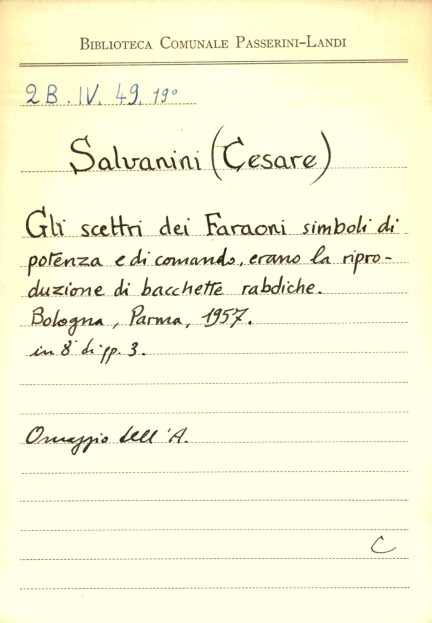 BIBLIOTECA COMUNALE PASSERINI-LANDI
2B. IV. 49. 19°
Salvanini (Cesare)
Gli scettri dei Faraoni simboli di
potenza e di comando, erano la ripro-
duzione di bacchette rabdiche.
Bologna, Parma, 1957.
in 8° di pp. 3.
Omaggio dell'A.
C